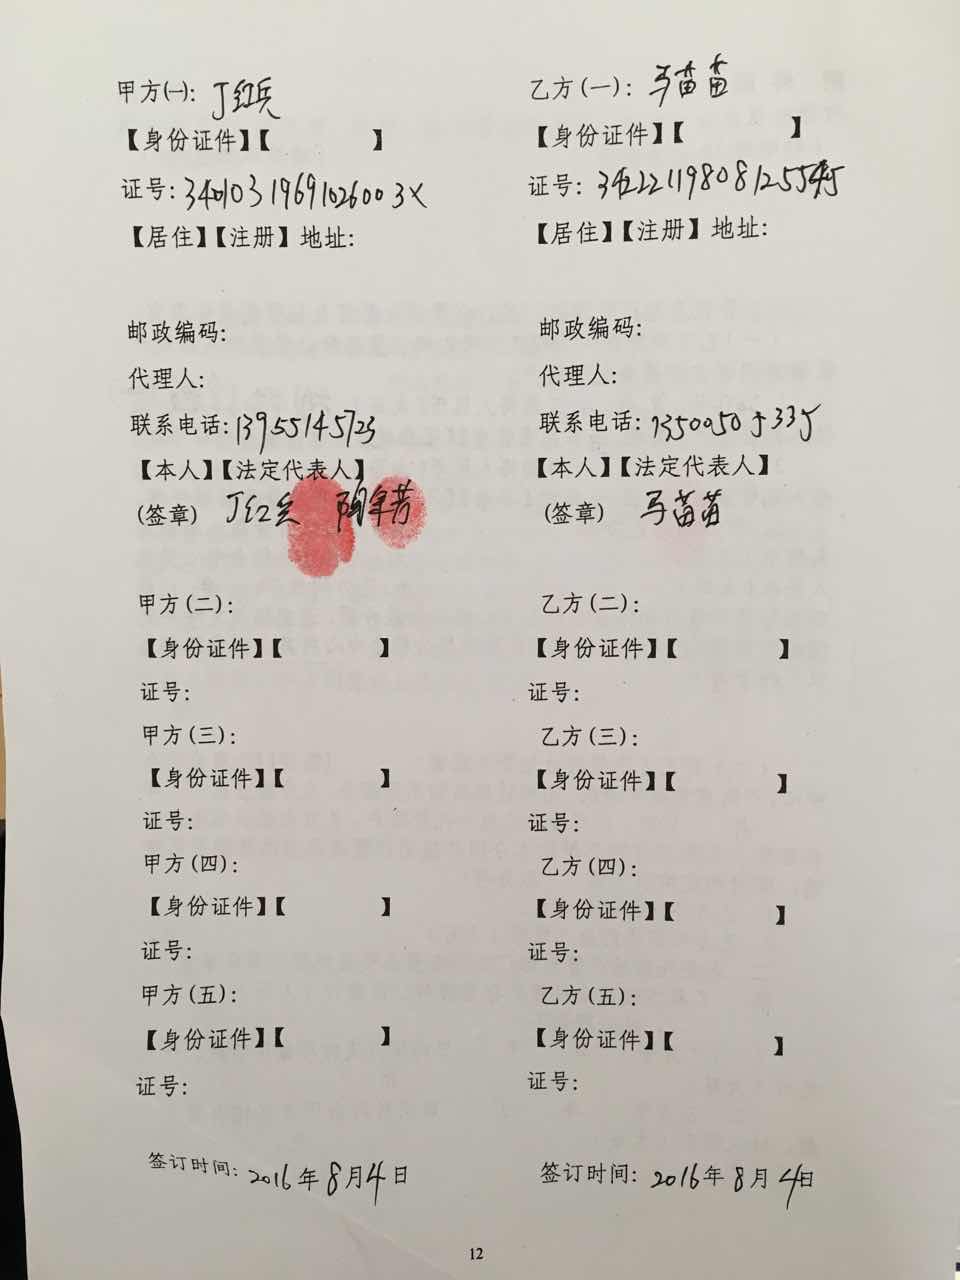 甲方(一): 丁红兵
【身份证件】【 】
证号: 34010319691026003X
【居住】【注册】地址:
邮政编码:
代理人:
联系电话: 13955145723
【本人】【法定代表人】
(签章) 丁红兵
甲方(二):
【身份证件】【 】
证号:
甲方(三):
【身份证件】【 】
证号:
甲方(四):
【身份证件】【 】
证号:
甲方(五):
【身份证件】【 】
证号:
签订时间: 2016年8月4日
乙方(一): 马苗苗
【身份证件】【 】
证号:
【居住】【注册】地址:
邮政编码:
代理人:
联系电话: 13500505335
【本人】【法定代表人】
(签章) 马苗苗
乙方(二):
【身份证件】【 】
证号:
乙方(三):
【身份证件】【 】
证号:
乙方(四):
【身份证件】【 】
证号:
乙方(五):
【身份证件】【 】
证号:
签订时间: 2016年8月4日
12